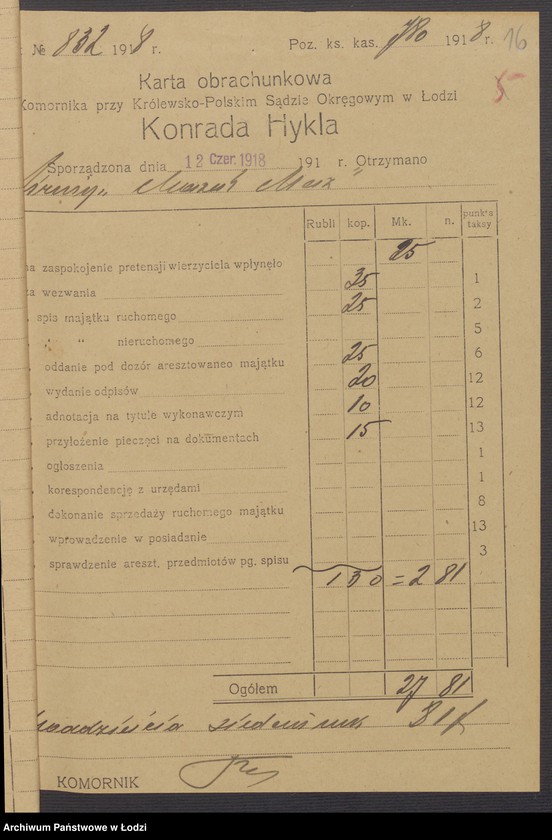 № 832 1918 r. Poz. ks. kas. 1918 r. 16
5
Karta obrachunkowa
Komornika przy Królewsko-Polskim Sądzie Okręgowym w Łodzi
Konrada Hykla
Sporządzona dnia 12 Czer. 1918 191 r. Otrzymano
Rubli kop. Mk. n. punkta taksy
25
na zaspokojenie pretensji wierzyciela wpłynęło
za wezwania 35 1
spis majątku ruchomego 25 2
" " nieruchomego 5
oddanie pod dozór aresztowaneo majątku 25 6
wydanie odpisów 20 12
adnotacja na tytule wykonawczym 10 12
przyłożenie pieczęci na dokumentach 15 13
ogłoszenia 1
korespondencję z urzędami 1
dokonanie sprzedaży ruchomego majątku 8
wprowadzenie w posiadanie 13
sprawdzenie areszt. przedmiotów pg. spisu 3
130 = 2 81
Ogółem 27 81
81 f
KOMORNIK
Archiwum Państwowe w Łodzi